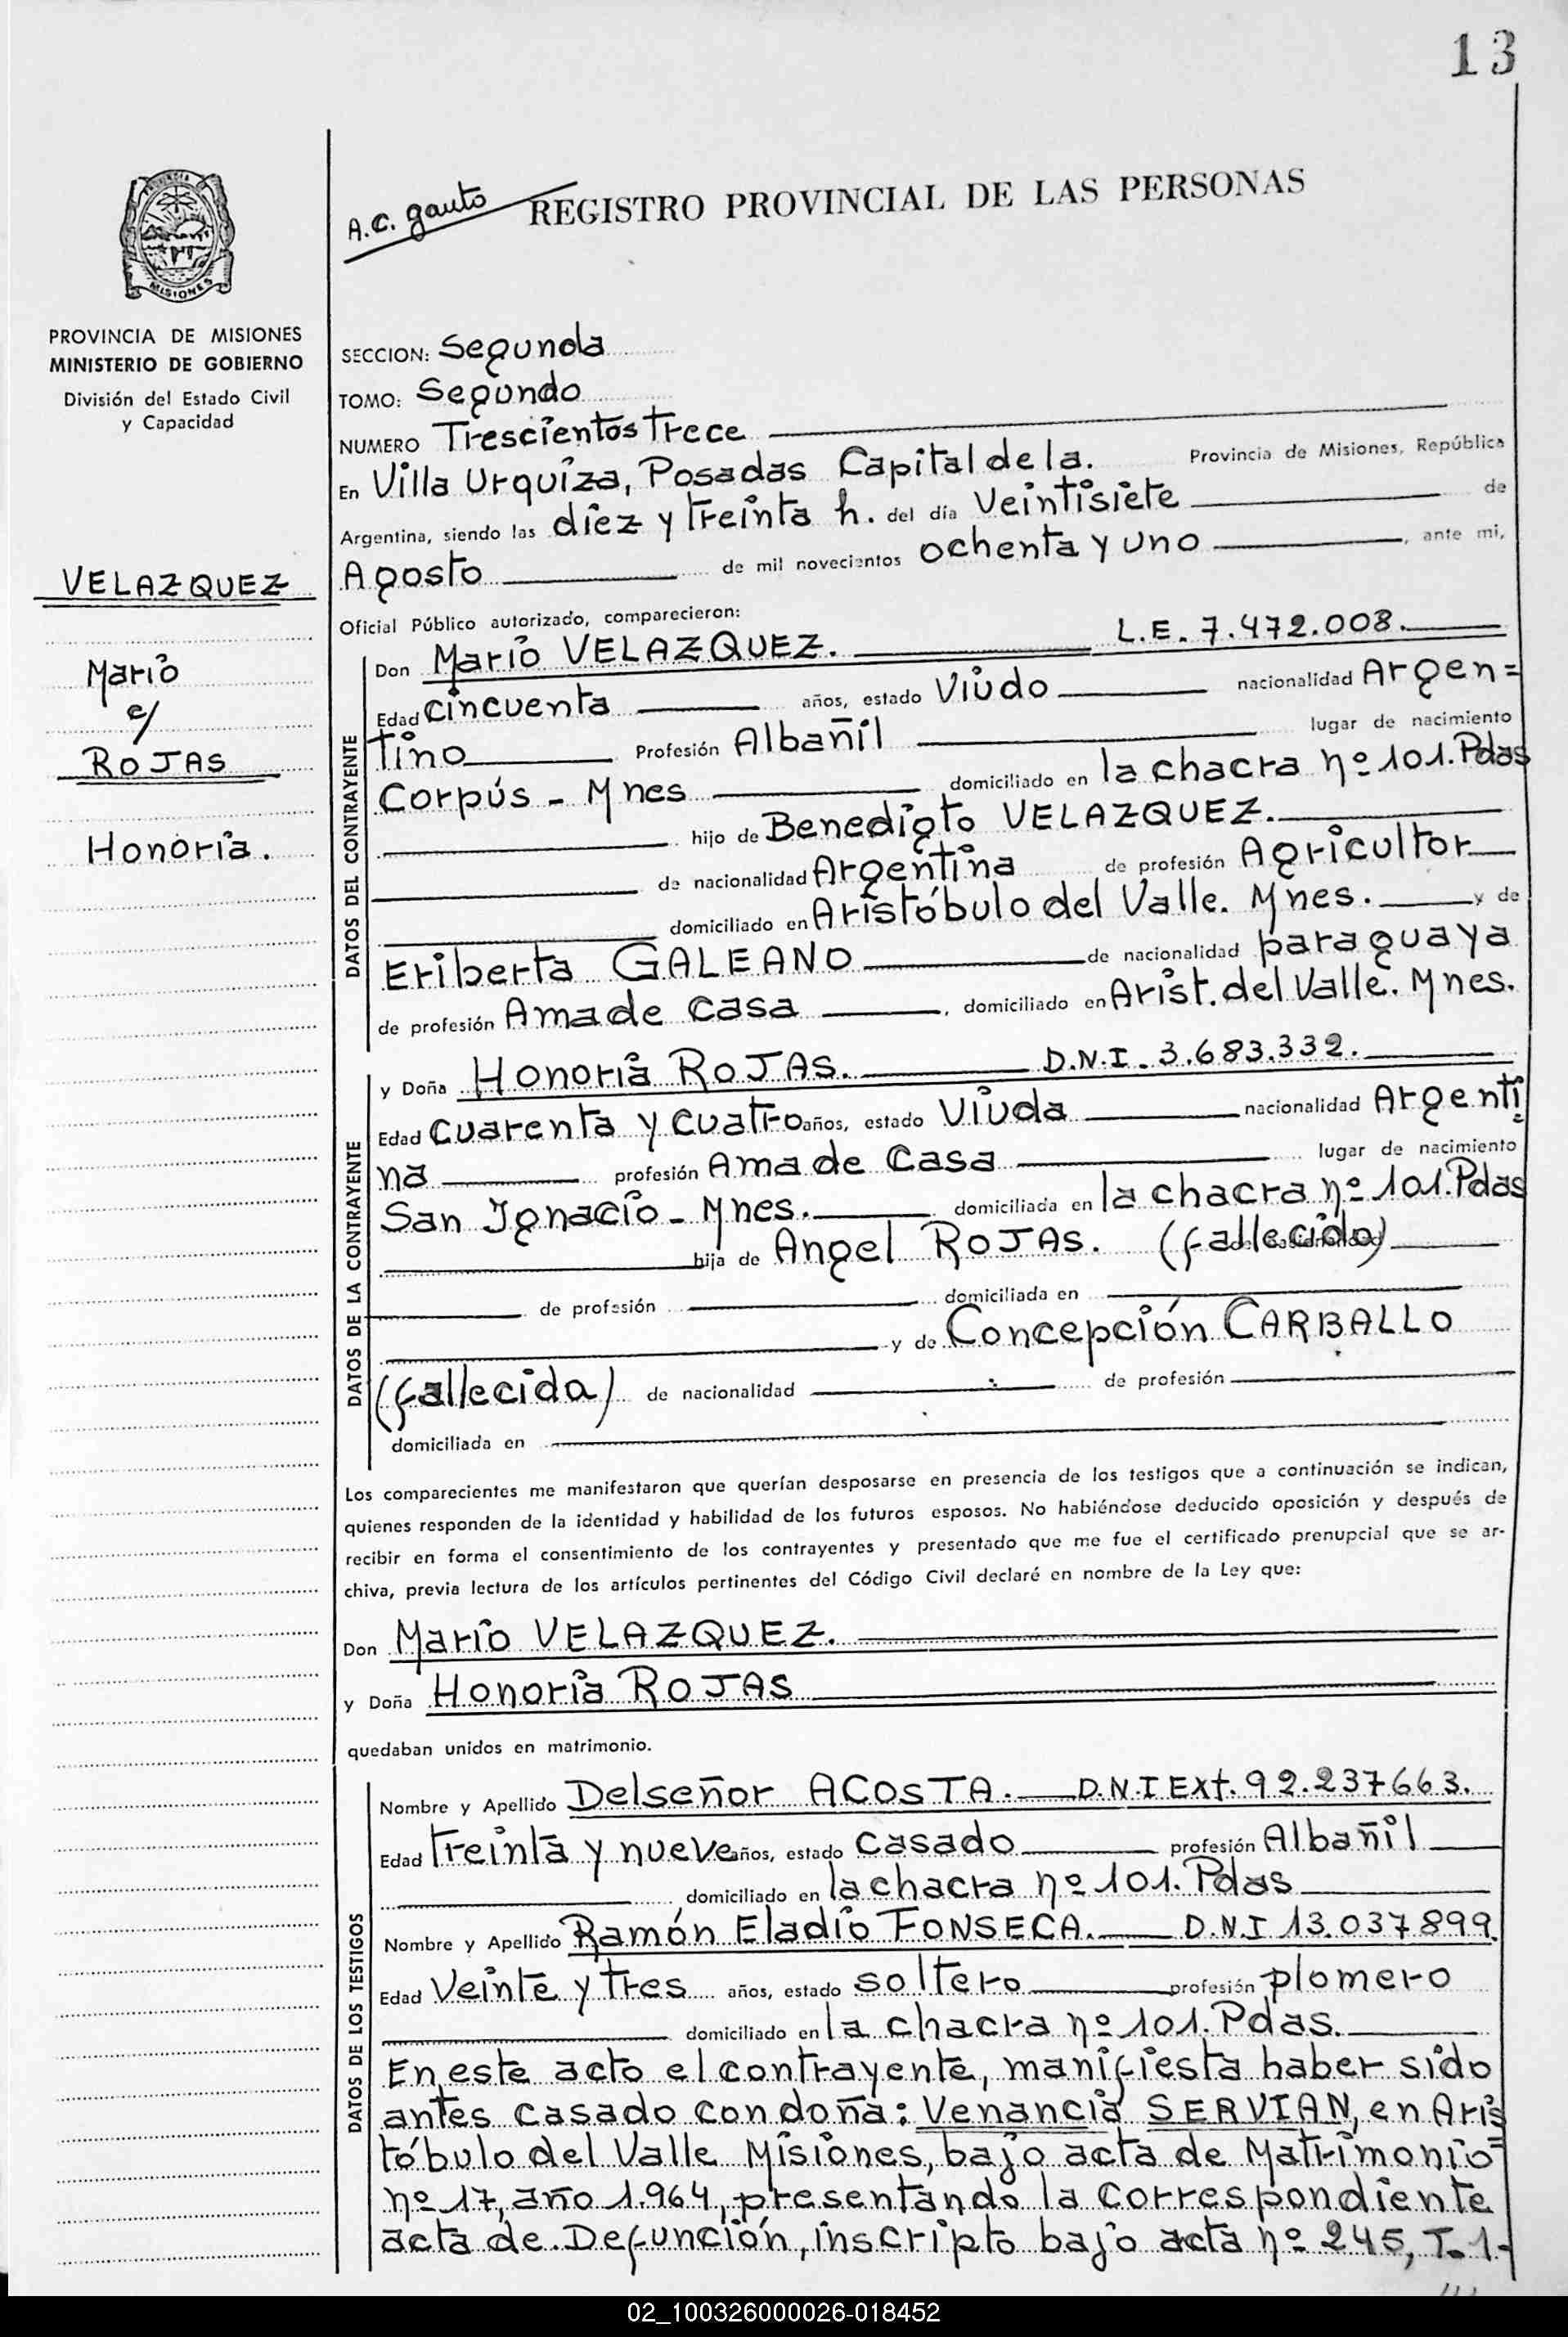 13
A.C. gauto
REGISTRO PROVINCIAL DE LAS PERSONAS
MISIONES
PROVINCIA DE MISIONES
MINISTERIO DE GOBIERNO
División del Estado Civil
y Capacidad
VELAZQUEZ
Mario
c/
ROJAS
Honoria.
SECCION: Segunda
TOMO: Segundo
NUMERO Trescientos Trece
En Villa Urquiza, Posadas Capital de la. Provincia de Misiones, República
Argentina, siendo las diez y treinta h. del día Veintisiete de
Agosto de mil novecientos ochenta y uno, ante mi,
Oficial Público autorizado, comparecieron:
DATOS DEL CONTRAYENTE
Don Mario VELAZQUEZ. L.E. 7.472.008.
Edad cincuenta años, estado Viudo nacionalidad Argen=
tino Profesión Albañil lugar de nacimiento
Corpús - Mnes domiciliado en la chacra nº 101. Pdas
hijo de Benedigto VELAZQUEZ.
de nacionalidad Argentina de profesión Agricultor
domiciliado en Aristóbulo del Valle. Mnes. y de
Eriberta GALEANO de nacionalidad paraguaya
de profesión Ama de casa, domiciliado en Arist. del Valle. Mnes.
DATOS DE LA CONTRAYENTE
y Doña Honoria ROJAS. D.N.I. 3.683.332.
Edad cuarenta y cuatro años, estado Viuda nacionalidad Argenti=
na profesión Ama de casa lugar de nacimiento
San Ignacio - Mnes. domiciliada en la chacra nº 101. Pdas
hija de Angel ROJAS. (fallecido)
de profesión domiciliada en
y de Concepción CARBALLO
(fallecida) de nacionalidad de profesión
domiciliada en
Los comparecientes me manifestaron que querían desposarse en presencia de los testigos que a continuación se indican,
quienes responden de la identidad y habilidad de los futuros esposos. No habiéndose deducido oposición y después de
recibir en forma el consentimiento de los contrayentes y presentado que me fue el certificado prenupcial que se ar-
chiva, previa lectura de los artículos pertinentes del Código Civil declaré en nombre de la Ley que:
Don Mario VELAZQUEZ.
y Doña Honoria ROJAS
quedaban unidos en matrimonio.
DATOS DE LOS TESTIGOS
Nombre y Apellido Delseñor ACOSTA. D.N.I Ext. 92.237663.
Edad treinta y nueve años, estado casado profesión Albañil
domiciliado en la chacra nº 101. Pdas
Nombre y Apellido Ramón Eladio FONSECA. D.N.I 13.037899.
Edad Veinte y tres años, estado soltero profesión plomero
domiciliado en la chacra nº 101. Pdas.
En este acto el contrayente, manifiesta haber sido
antes casado con doña: Venancia SERVIAN, en Aris
tóbulo del Valle Misiones, bajo acta de Matrimonio=
nº 17, año 1.964, presentando la correspondiente
acta de Defunción, inscripto bajo acta nº 245, T. 1-
02_100326000026-018452